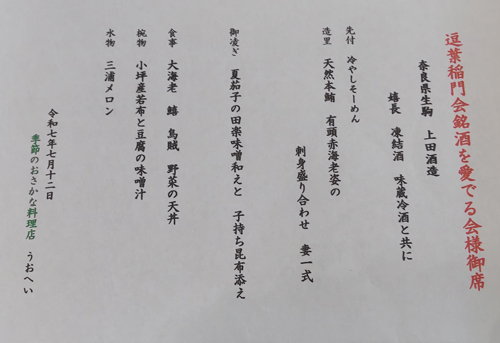 逗葉稲門会銘酒を愛でる会様御席
奈良県生駒 上田酒造
嬉長 凍結酒 味蔵冷酒と共に
先付 冷やしそーめん
造里 天然本鮪 有頭赤海老姿の
刺身盛り合わせ 妻一式
御凌ぎ 夏茄子の田楽味噌和えと 子持ち昆布添え
食事 大海老 鱚 烏賊 野菜の天丼
椀物 小坪産若布と豆腐の味噌汁
水物 三浦メロン
令和七年七月十二日
季節のおさかな料理店 うおへい